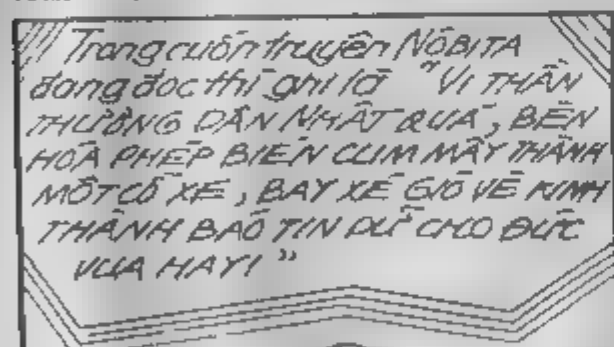 Trong cuốn truyện NÔBITA
đang đọc thì ghi là "VỊ THẦN
THƯỜNG DÂN NHẬT QUÁ, BÈN
HÓA PHÉP BIẾN CỤM MÂY THÀNH
MỘT CỖ XE, BAY XÉ GIÓ VỀ KINH
THÀNH BÁO TIN DỮ CHO ĐỨC
VUA HAY!"